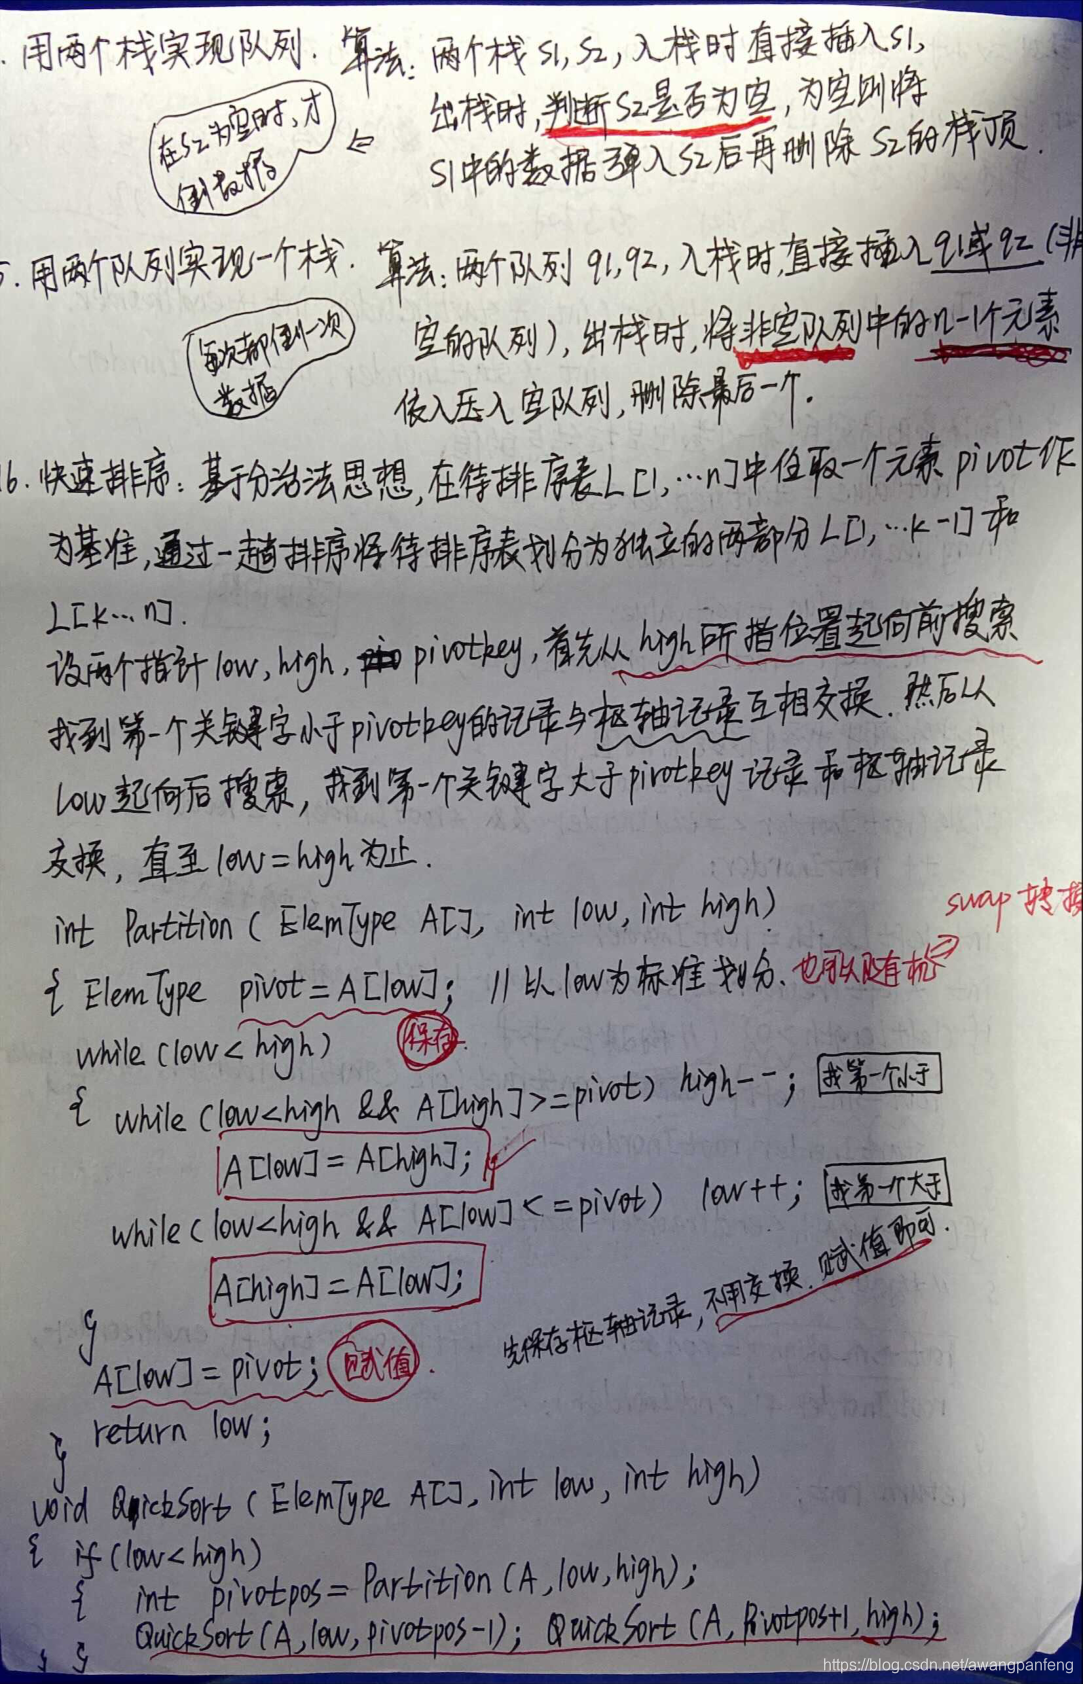 . 用两个栈实现队列. 算法: 两个栈 S1, S2, 入栈时直接插入S1,
出栈时, 判断S2是否为空, 为空则将
S1中的数据弹入S2后再删除 S2的栈顶.
在S2为空时, 才
倒数据
5. 用两个队列实现一个栈. 算法: 两个队列 q1, q2, 入栈时, 直接插入q1或q2 (非
空的队列), 出栈时, 将非空队列中的n-1个元素
依入压入空队列, 删除最后一个.
每次都倒一次
数据
16. 快速排序: 基于分治法思想, 在待排序表L[1, …n]中任取一个元素 pivot作
为基准, 通过一趟排序将待排序表划分为独立的两部分L[1, …k-1] 和
L[k…n].
设两个指针low, high, pivotkey, 首先从high所指位置起向前搜索
找到第一个关键字小于pivotkey的记录与枢轴记录互相交换. 然后从
low起向后搜索, 找到第一个关键字大于pivotkey记录和枢轴记录
交换, 直至low=high为止.
swap 转换
int Partition ( ElemType A[], int low, int high)
{ ElemType pivot = A[low]; // 以low为标准划分. 也可以随机
保存.
while (low < high)
{ while (low<high && A[high]>=pivot) high--; 找第一个小于
A[low] = A[high];
while (low<high && A[low]<=pivot) low++; 找第一个大于
A[high] = A[low];
}
先保存枢轴记录, 不用交换. 赋值即可.
A[low] = pivot; 赋值.
return low;
}
void QuickSort ( ElemType A[], int low, int high)
{ if (low<high)
{ int pivotpos = Partition (A, low, high);
QuickSort (A, low, pivotpos-1); QuickSort (A, Pivotpos+1, high);
} }
https://blog.csdn.net/awangpanfeng